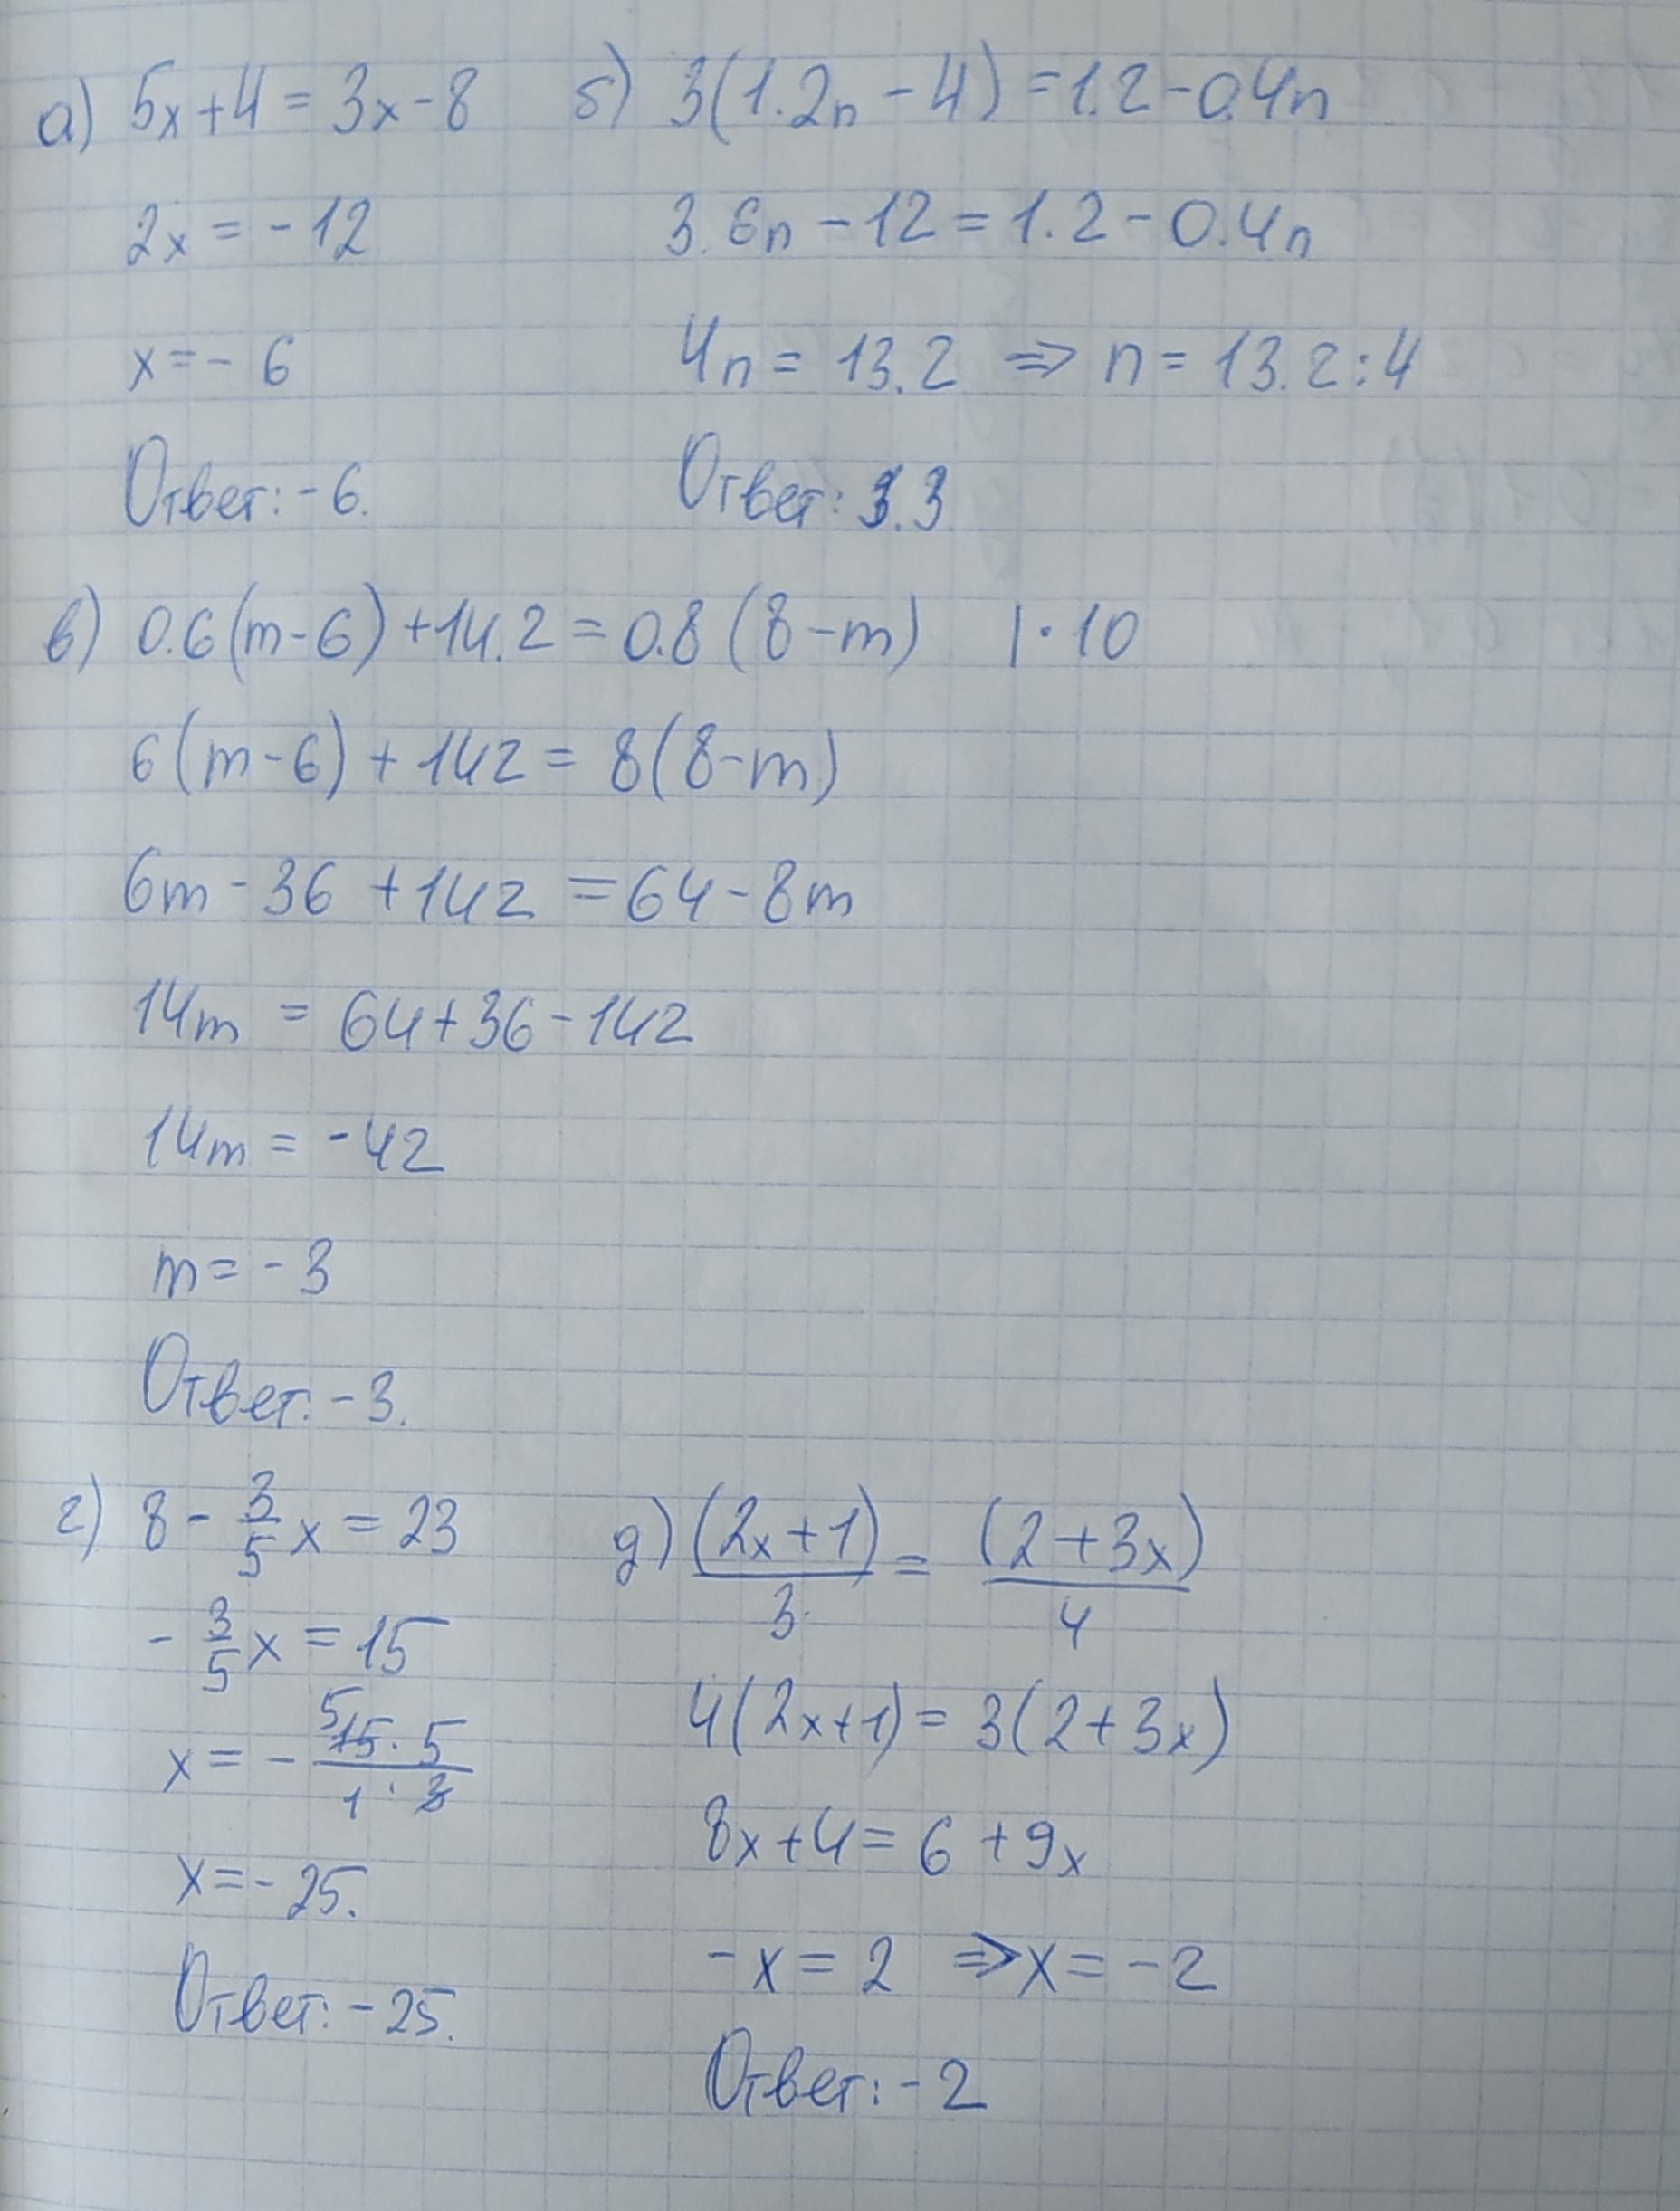 а) 5x+4=3x-8
2x=-12
x=-6
Ответ: -6.
б) 3(1.2n-4)=1.2-0.4n
3.6n-12=1.2-0.4n
4n=13.2 ⇒ n=13.2:4
Ответ: 3.3
в) 0.6(m-6)+14.2=0.8(8-m) |·10
6(m-6)+142=8(8-m)
6m-36+142=64-8m
14m=64+36-142
14m=-42
m=-3
Ответ: -3.
г) 8-3/5x=23
-3/5x=15
x=-(15·5)/(1·3)
x=-25.
Ответ: -25.
д) (2x+1)/3=(2+3x)/4
4(2x+1)=3(2+3x)
8x+4=6+9x
-x=2 ⇒ x=-2
Ответ: -2